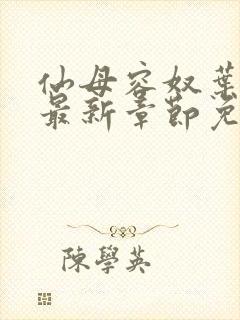 仙母容奴葉
最新章節免
陳學英